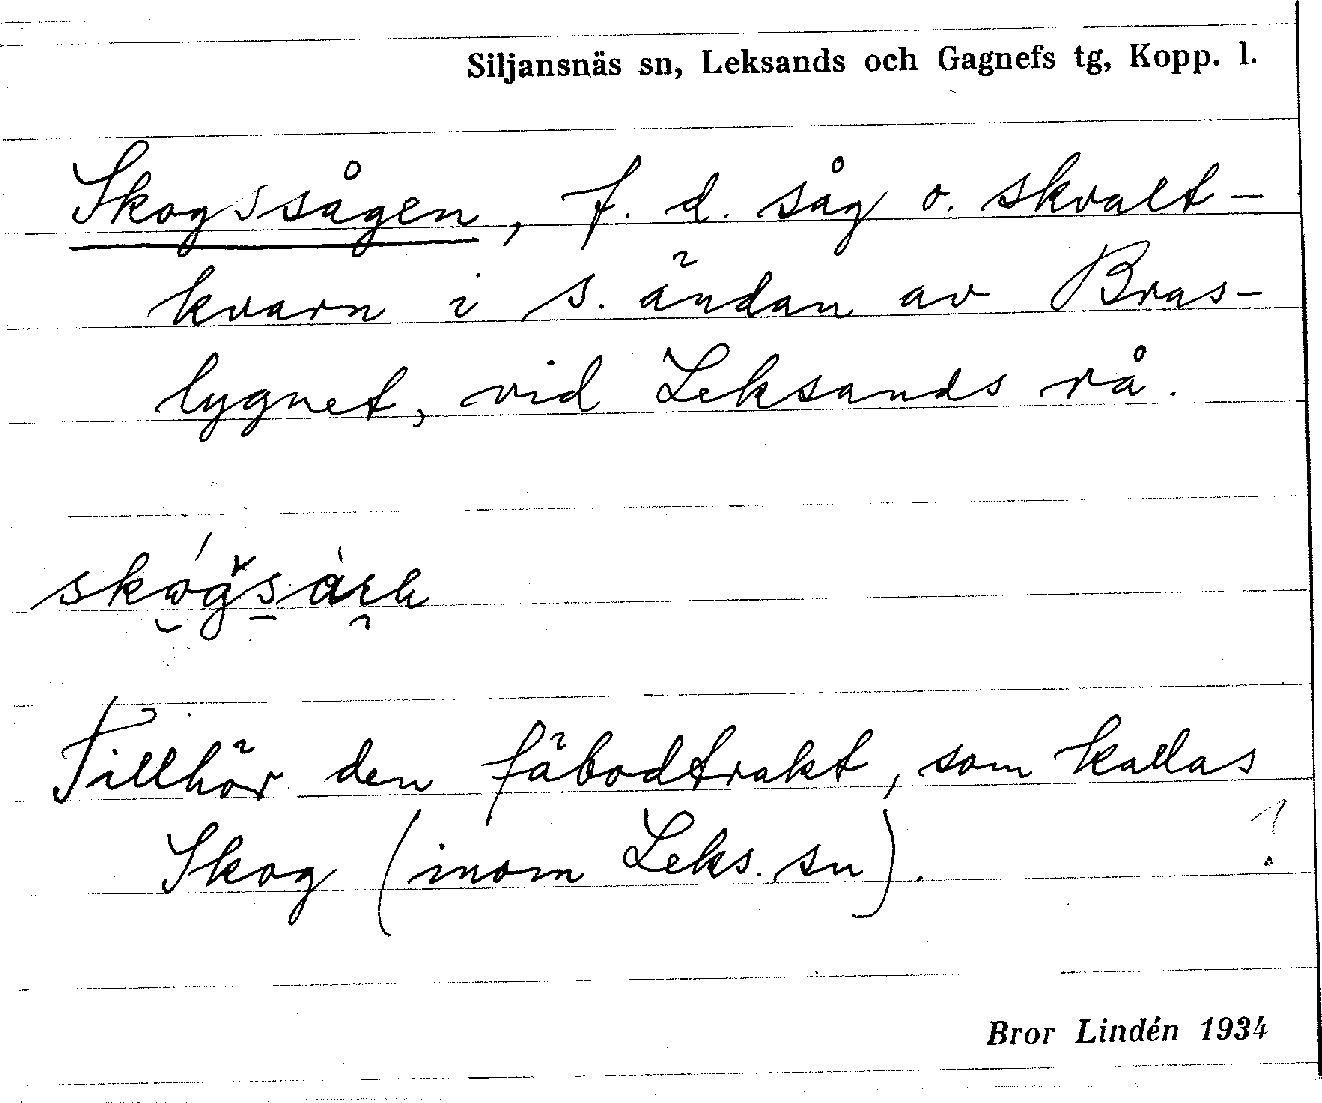 Siljansnäs sn, Leksands och Gagnefs tg, Kopp. l.
Skogssågen, f. d. såg o. skvalt-
kvarn i s. ändan av Bras-
lygnet, vid Leksands rå.
Tillhör den fäbodtrakt, som kallas
Skog (inom Leks. sn).
Bror Lindén 1934